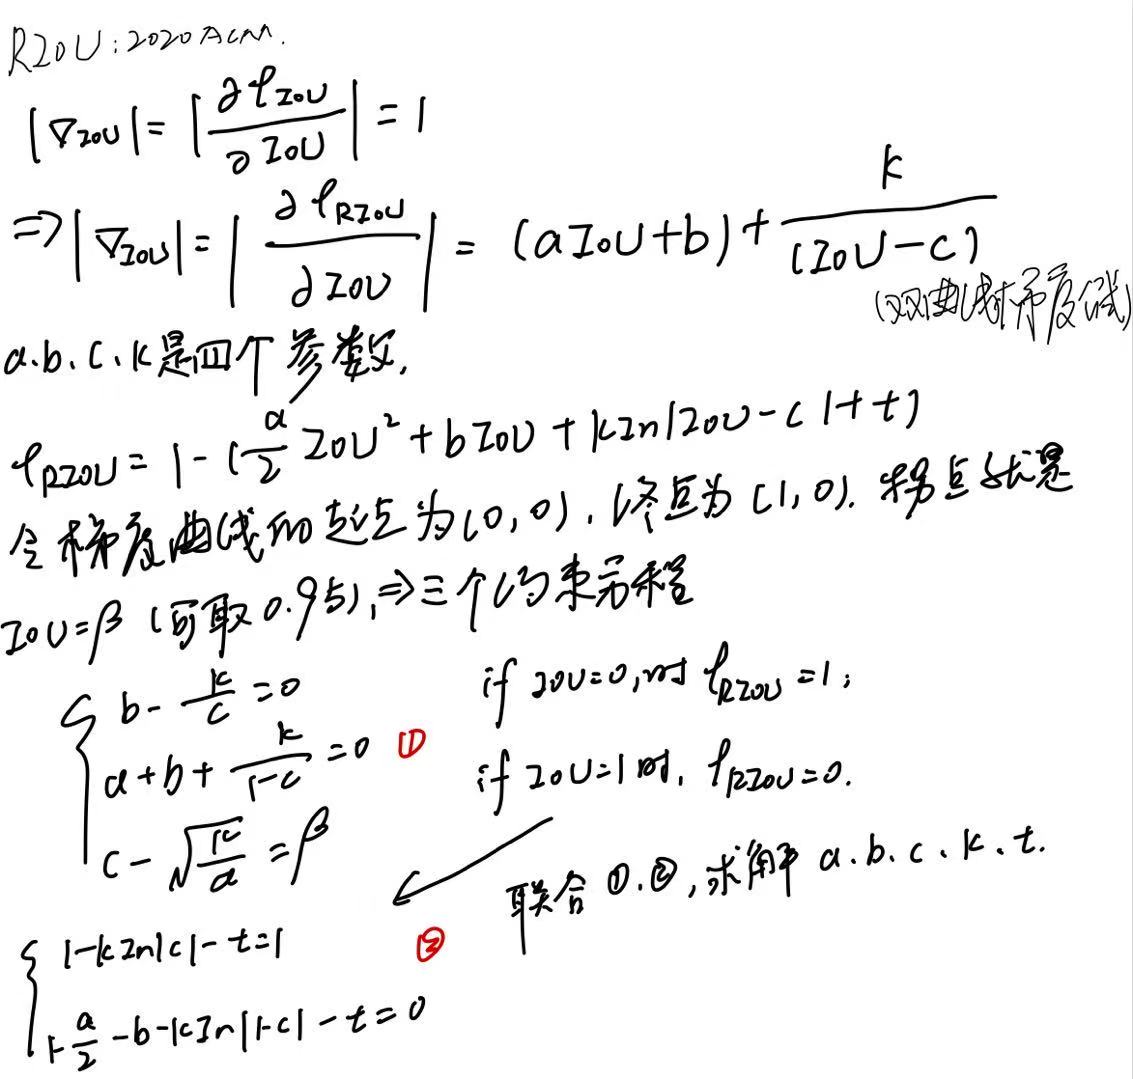 RIoU:2020 Acm.
|∇IoU| = |∂ℓIoU / ∂IoU| = 1
⇒ |∇IoU| = |∂ℓRIoU / ∂IoU| = (aIoU+b) + k / (IoU-c)
(双曲线梯度线)
a.b.c.k是四个参数,
ℓRIoU = 1-(a/2 IoU² + bIoU + kIn|IoU-c|+t)
令梯度曲线的起点为(0,0),终点为(1,0).拐点就是
IoU=β (可取0.95),⇒三个约束方程
{ b - k/c = 0
a+b+ k/(1-c) = 0 ①
c - √(k/a) = β
if IoU=0,时 ℓRIoU=1;
if IoU=1时, ℓRIoU=0.
联合①.②,求解 a.b.c.k.t.
{ 1-kIn|c|-t=1 ②
1-a/2-b-kIn|1-c|-t=0